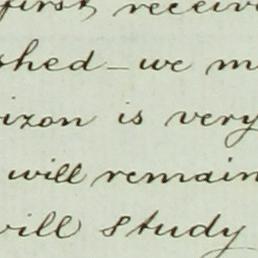 first receiv
shed - we m
izon is very
will remain
will study